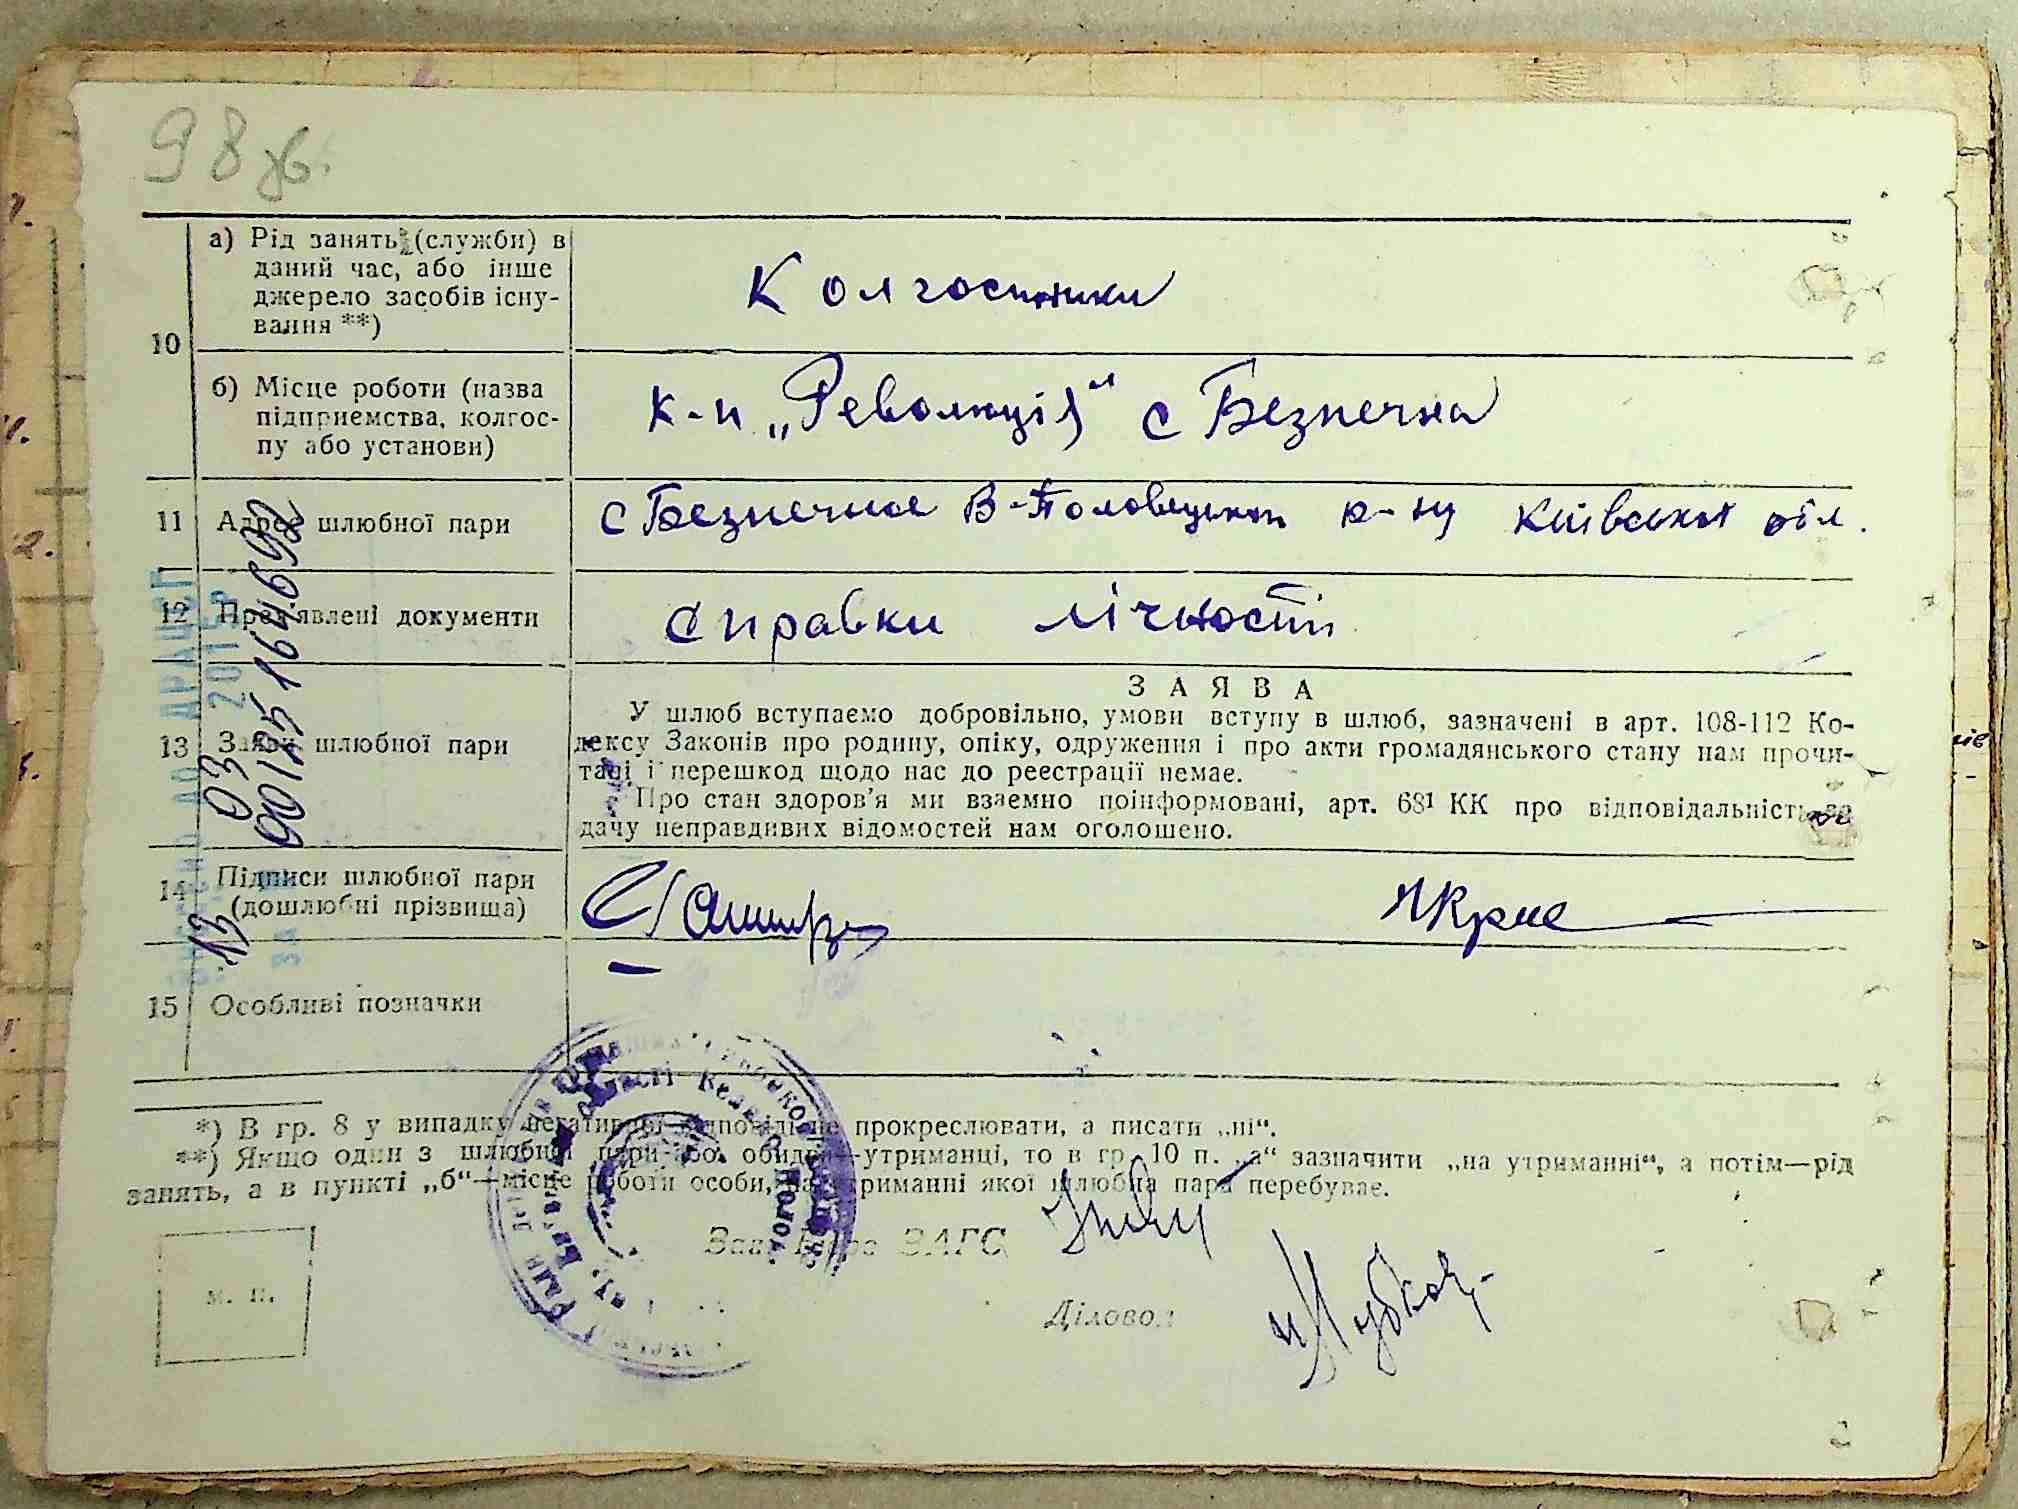 98 зв.
10
а) Рід занять (служби) в
даний час, або інше
джерело засобів існу-
вання **)
Колгоспники
б) Місце роботи (назва
підприємства, колгос-
пу або установи)
к-п „Революція" с Безпечна
11 Адрес шлюбної пари
с Безпечне В-Половецького р-ну Київської обл.
12 Пред'явлені документи
Справки лічності
13 Заява шлюбної пари
ЗАЯВА
У шлюб вступаємо добровільно, умови вступу в шлюб, зазначені в арт. 108-112 Ко-
дексу Законів про родину, опіку, одруження і про акти громадянського стану нам прочи-
тані і перешкод щодо нас до реєстрації немає.
Про стан здоров'я ми взаємно поінформовані, арт. 68¹ КК про відповідальність за
дачу неправдивих відомостей нам оголошено.
14 Підписи шлюбної пари
(дошлюбні прізвища)
15 Особливі позначки
*) В гр. 8 у випадку негативної відповіді не прокреслювати, а писати „ні".
**) Якщо один з шлюбної пари або обидва—утриманці, то в гр. 10 п. „а" зазначити „на утриманні", а потім—рід
занять, а в пункті „б"—місце роботи особи, на утриманні якої шлюбна пара перебуває.
Зав. Бюро ЗАГС
м. п.
Діловод
ДО ДРАЦСГ
13 03 2015 р
за № 00125164692